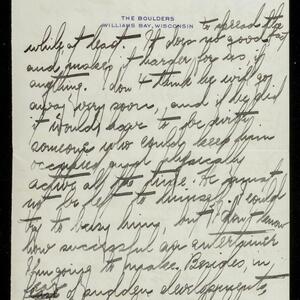 THE BOULDERS
WILLIAMS BAY, WISCONSIN
to spread the
while at least. It does no good
and makes it harder for us, if
anything. I don't think he will go
away very soon, and if he did
it would have to be with
someone who could keep him
occupied and physically
active all the time. He must
not be left to himself. I could
try to busy him, but I don't know
how successful an entertainer
I'm going to make. Besides, in
case of sudden developments,